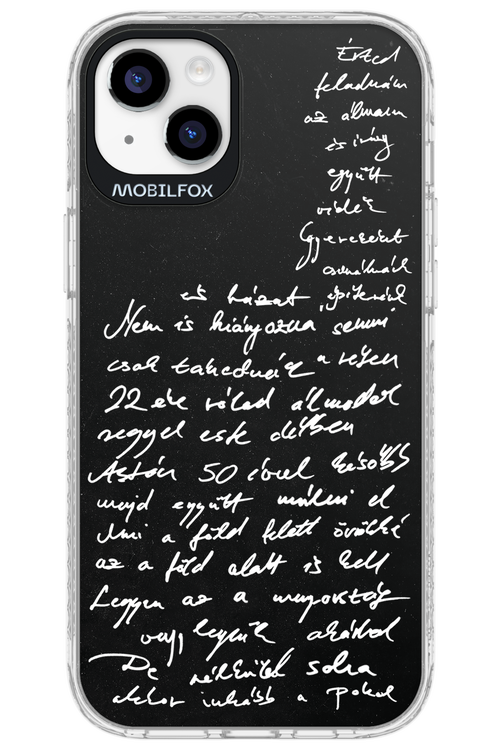 MOBILFOX
Érted
feladnám
az álmaim
és irány
együtt
vidék
Gyerekeket
csinálnánk
és házat építenénk
Nem is hiányozna semmi
csak takednénk a télen
22 éve rólad álmodok
reggel este délben
Aztán 50 évvel később
majd együtt múlni el
Ami a föld felett örökké
az a föld alatt is kell
Legyen az a mennyország
vagy legyünk akárhol
De nélküled soha
akkor inkább a Pokol